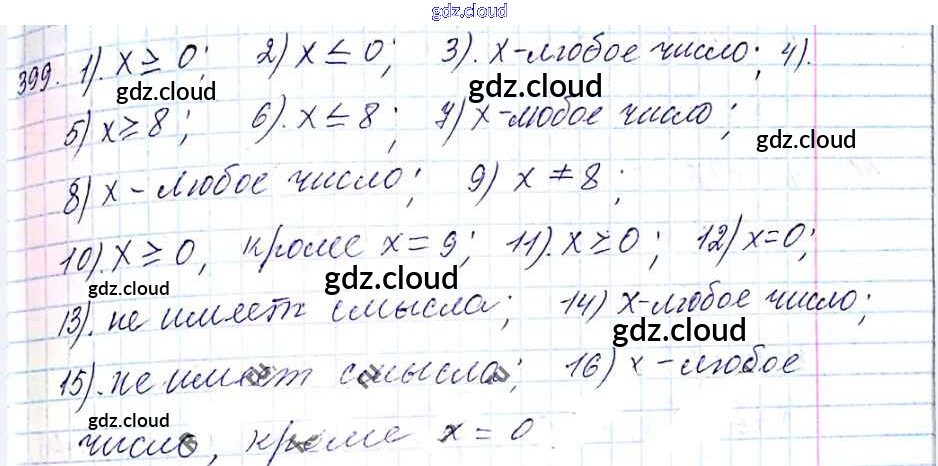 gdz.cloud
399. 1). x ≥ 0; 2) x ≤ 0; 3). x-любое число; 4).
gdz.cloud gdz.cloud
5) x ≥ 8; 6). x ≤ 8; 7) x-любое число;
gdz.cloud
8) x - любое число; 9) x ≠ 8;
10). x ≥ 0, кроме x = 9; 11). x ≥ 0; 12) x=0;
gdz.cloud gdz.cloud
13). не имеет смысла; 14) x-любое число;
gdz.cloud
15). не имеет смысла; 16) x - любое
gdz.cloud
число, кроме x = 0